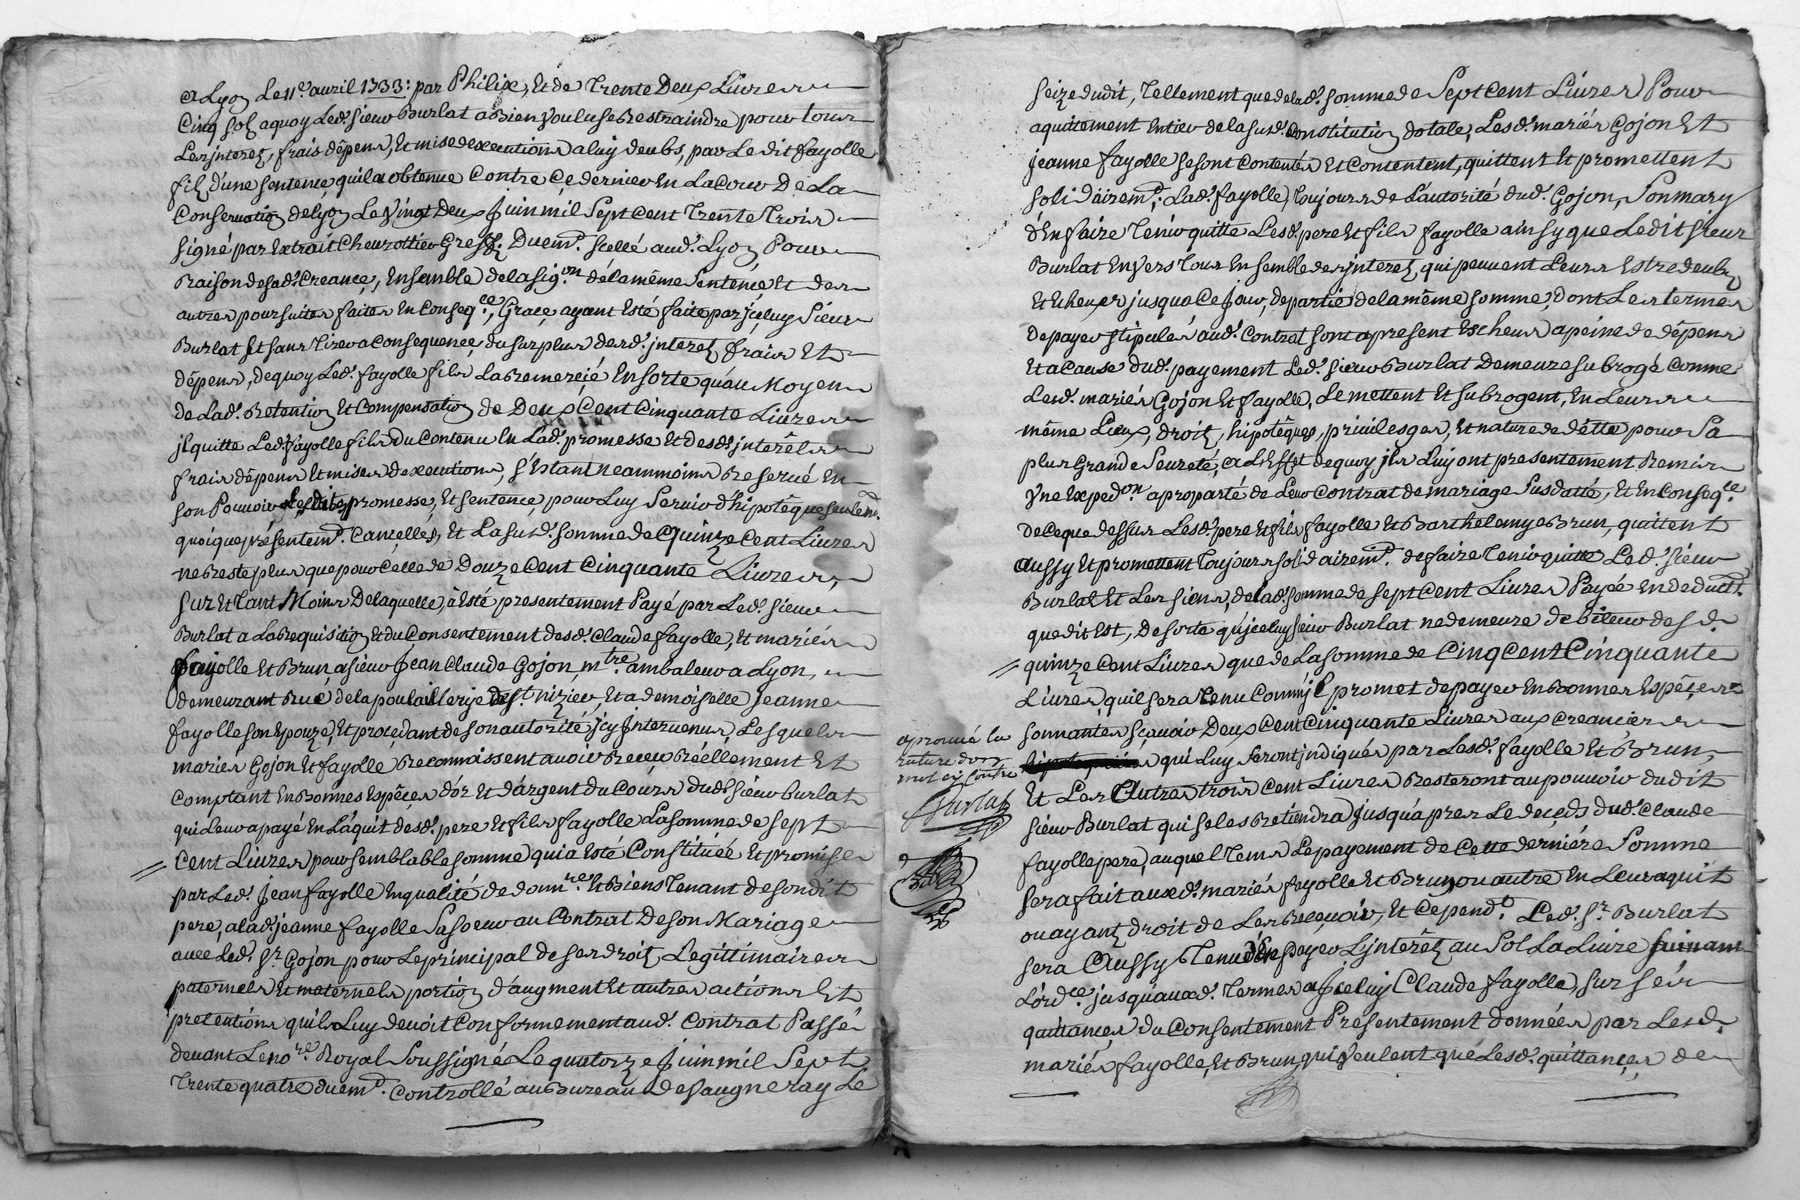 a Lyon Le 11e. avril 1733: par Philix, Et de Trente Deux Livres
Cinq sols aquoy Led. sieur Burlat a Bien voulu se Restraindre pour tous
Les jnterez, frais dépens, Et mise dexecutions a luy deubs, par Le dit fayolle
fils d'une sentence quil a obtenue Contre Ce dernier En La Cour De La
Conservation de lyon Le vingt Deux Juin mil sept Cent Trente Trois
signé par Extrait Cheurottier Greff. Duem. scellé aud. Lyon Pour
Raison desad. Creance, Ensemble delasigon. de la même Sentence, Et des
autres poursuites faites En Conseqce. Grace ayant Esté faite par jceluy Sieur
Burlat Et sans Tirer a Consequence, du surplus desd. jnterez frais Et
dépens, dequoy Led. fayolle fils La Remercié Ensorte qu'au Moyen
de Lad. Retention Et Compensation de Deux Cent Cinquante Livres
jl quitte Led. fayolle fils du Contenu En Lad. promesse Et desd. jnterêts
frais dépens Et mises dexecutions, s'Estant neammoins Reservé En
son Pouvoir Lesdites promesse, Et sentence, pour Luy Servir d'hipotêque seulemt.
quoique présentemt. Cancellés, Et La susd. somme de Quinze Cent Livres
ne Reste plus que pour Celle de Douze Cent Cinquante Livres,
sur Et Tant Moins De laquelle, à Esté presentement Payé par Led. sieur
Burlat a La Requisition Et du Consentement desd. Claude fayolle, Et mariés
fayolle Et Brun, a sieur Jean Claude Gojon, mtre. ambaleur a Lyon,
demeurant Rue de la poulaillerije de st. nizier, Et a demoiselle Jeanne
fayolle son Epouze, Et procedant de son autorité, jcy Intervenus, Lesquels
mariés Gojon Et fayolle Reconnoissent avoir Reçeu Réellement Et
Comptant En Bonnes Espêces d'or Et d'argent du Cours dudt sieur Burlat
qui Leur a payé En L'aquit desd. pere Et fils fayolle La somme de sept
Cent Livres, pour semblable somme qui a Esté Constituée Et promise
par Led. Jean fayolle En qualité de donnre. Et Biens Tenant de son dit
pere, a lad. jeanne fayolle Sa soeur au Contrat De son Mariage
avec Led. sr. Gojon pour Le principal de ses droits Legittimaires
paternels Et maternels portion d'augment Et autres actions Et
pretentions quils Luy devoit Conformement aud. Contrat Passé
devant Le nore. Royal Soussigné Le quatorze Juin mil Sept
Trente quatre duemt. Controllé au Bureau de Vaugneray Le
seize dudit, Tellement que de lad. somme de Sept Cent Livres Pour
aquittement Entier de la susd. Constitution dotale, Lesd. mariés Gojon Et
jeanne fayolle se sont Contentés Et Contentent, quittent Et promettent
solidairemt. Lad. fayolle, Toujours de L'autorité dud. Gojon, Son mary
d'En faire Tenir quitte Lesd. pere Et fils fayolle ainsy que Le dit sieur
Burlat Envers Tous Ensemble des jnterez, qui peuvent Leurs Estre deubz
Et Echeus jusqua Ce Jour, de partie de la même somme, dont Les termes
de payer stipulés aud. Contrat sont apresent Escheus a peine de dépens
Et a Cause dud. payement Led. sieur Burlat Demeure subrogé Comme
Lesd. mariés Gojon Et fayolle, Le mettent Et subrogent, En Leurs
même Lieux, droits, hipotêques, privileges, Et nature de dette pour Sa
plus Grande Seureté, a L'Effet de quoy, jls Luy ont presentement Remis
Vne Expedon. aproparté de Leur Contrat de mariage Susdatté, Et En Conseqce.
de Ceque dessus Lesd. pere Et fils fayolle Et Barthelemye Brun, quittent
aussy Et promettent Toujours solidairemt. de faire Tenir quitte Led. sieur
Burlat Et Les siens, de lad. somme de sept Cent Livres Payée En deduct.
que dit Est, De sorte qu'jceluy sieur Burlat ne demeure debiteur desd.
quinze Cent Livres que de La somme de Cinq Cent Cinquante
Livres, quil sera Tenu Comm'jl promet de payer En Bonnes Espêces
sonnantes sçavoir Deux Cent Cinquante Livres aux Creanciers
aprouvé la
rature d'un
mot cy Contre
Burlat
qui Luy seront jndiqués par Lesd. fayolle Et Brun,
Et Les Autres trois Cent Livres Resteront au pouvoir du dit
sieur Burlat qui se les Retiendra jusqu'apres Le deceds dud. Claude
fayolle pere, auquel Tems Le payement de Cette derniére Somme
sera fait auxd. mariés fayolle Et Brun, ou autre En Leur aquit
ou ayant droit de Les Recevoir, Et Cependt. Led. sr. Burlat
sera Aussy Tenu d'En payer L'jnterêt au Sol La Livre suivant
L'ordce. jusqu'auxd. Termes a Jceluy Claude fayolle, sur ses
quittances du Consentement Presentement donnée par Lesd.
mariés fayolle, Et Brun qui veulent que Lesd. quittances de